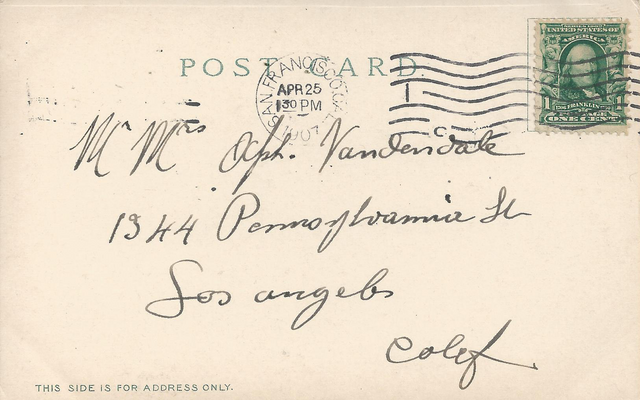 POST CARD
SAN FRANCISCO, CAL.
APR 25
1 30 PM
1907
1
UNITED STATES OF
AMERICA
FRANKLIN
1 1
POSTAGE
ONE CENT
Mr Mrs Vandendale
1344 Pennsylvannia St
Los angeles
Calif
THIS SIDE IS FOR ADDRESS ONLY.